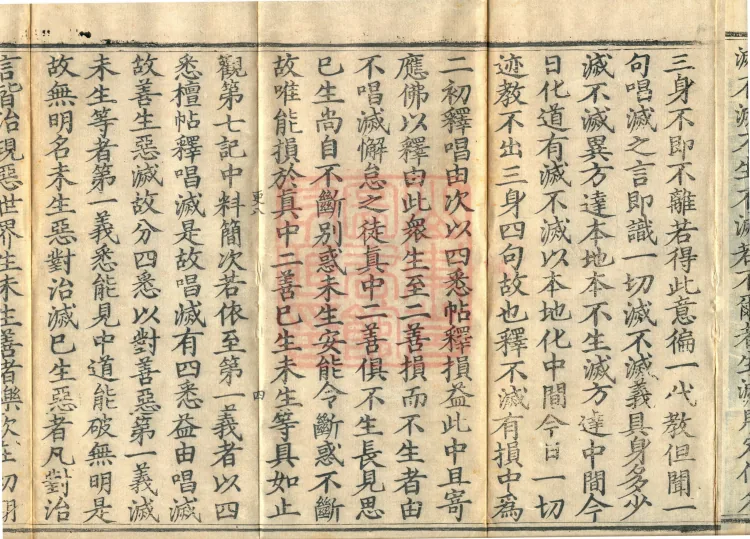 三身不即不離若得此意徧一代教但聞一
句唱滅之言即識一切滅不滅義具身多少
滅不滅異方達本地本不生滅方達中間今
日化道有滅不滅以本地化中間今日一切
迹教不出三身四句故也釋不滅有損中為
二初釋唱由次以四悉帖釋損益此中且寄
應佛以釋由此眾生至二善損而不生者由
不唱滅懈怠之徒真中二善俱不生長見思
巳生尚自不斷別惑未生安能令斷惑不斷
故唯能損於真中二善巳生未生等具如止
更六
四
觀第七記中料簡次若依至第一義者以四
悉檀帖釋唱滅是故唱滅有四悉益由唱滅
故善生惡滅故分四悉以對善惡第一義滅
未生等者第一義悉能見中道能破無明是
故無明名未生惡對治滅巳生惡者凡對治
言皆治現惡世界生未生善者樂次在初